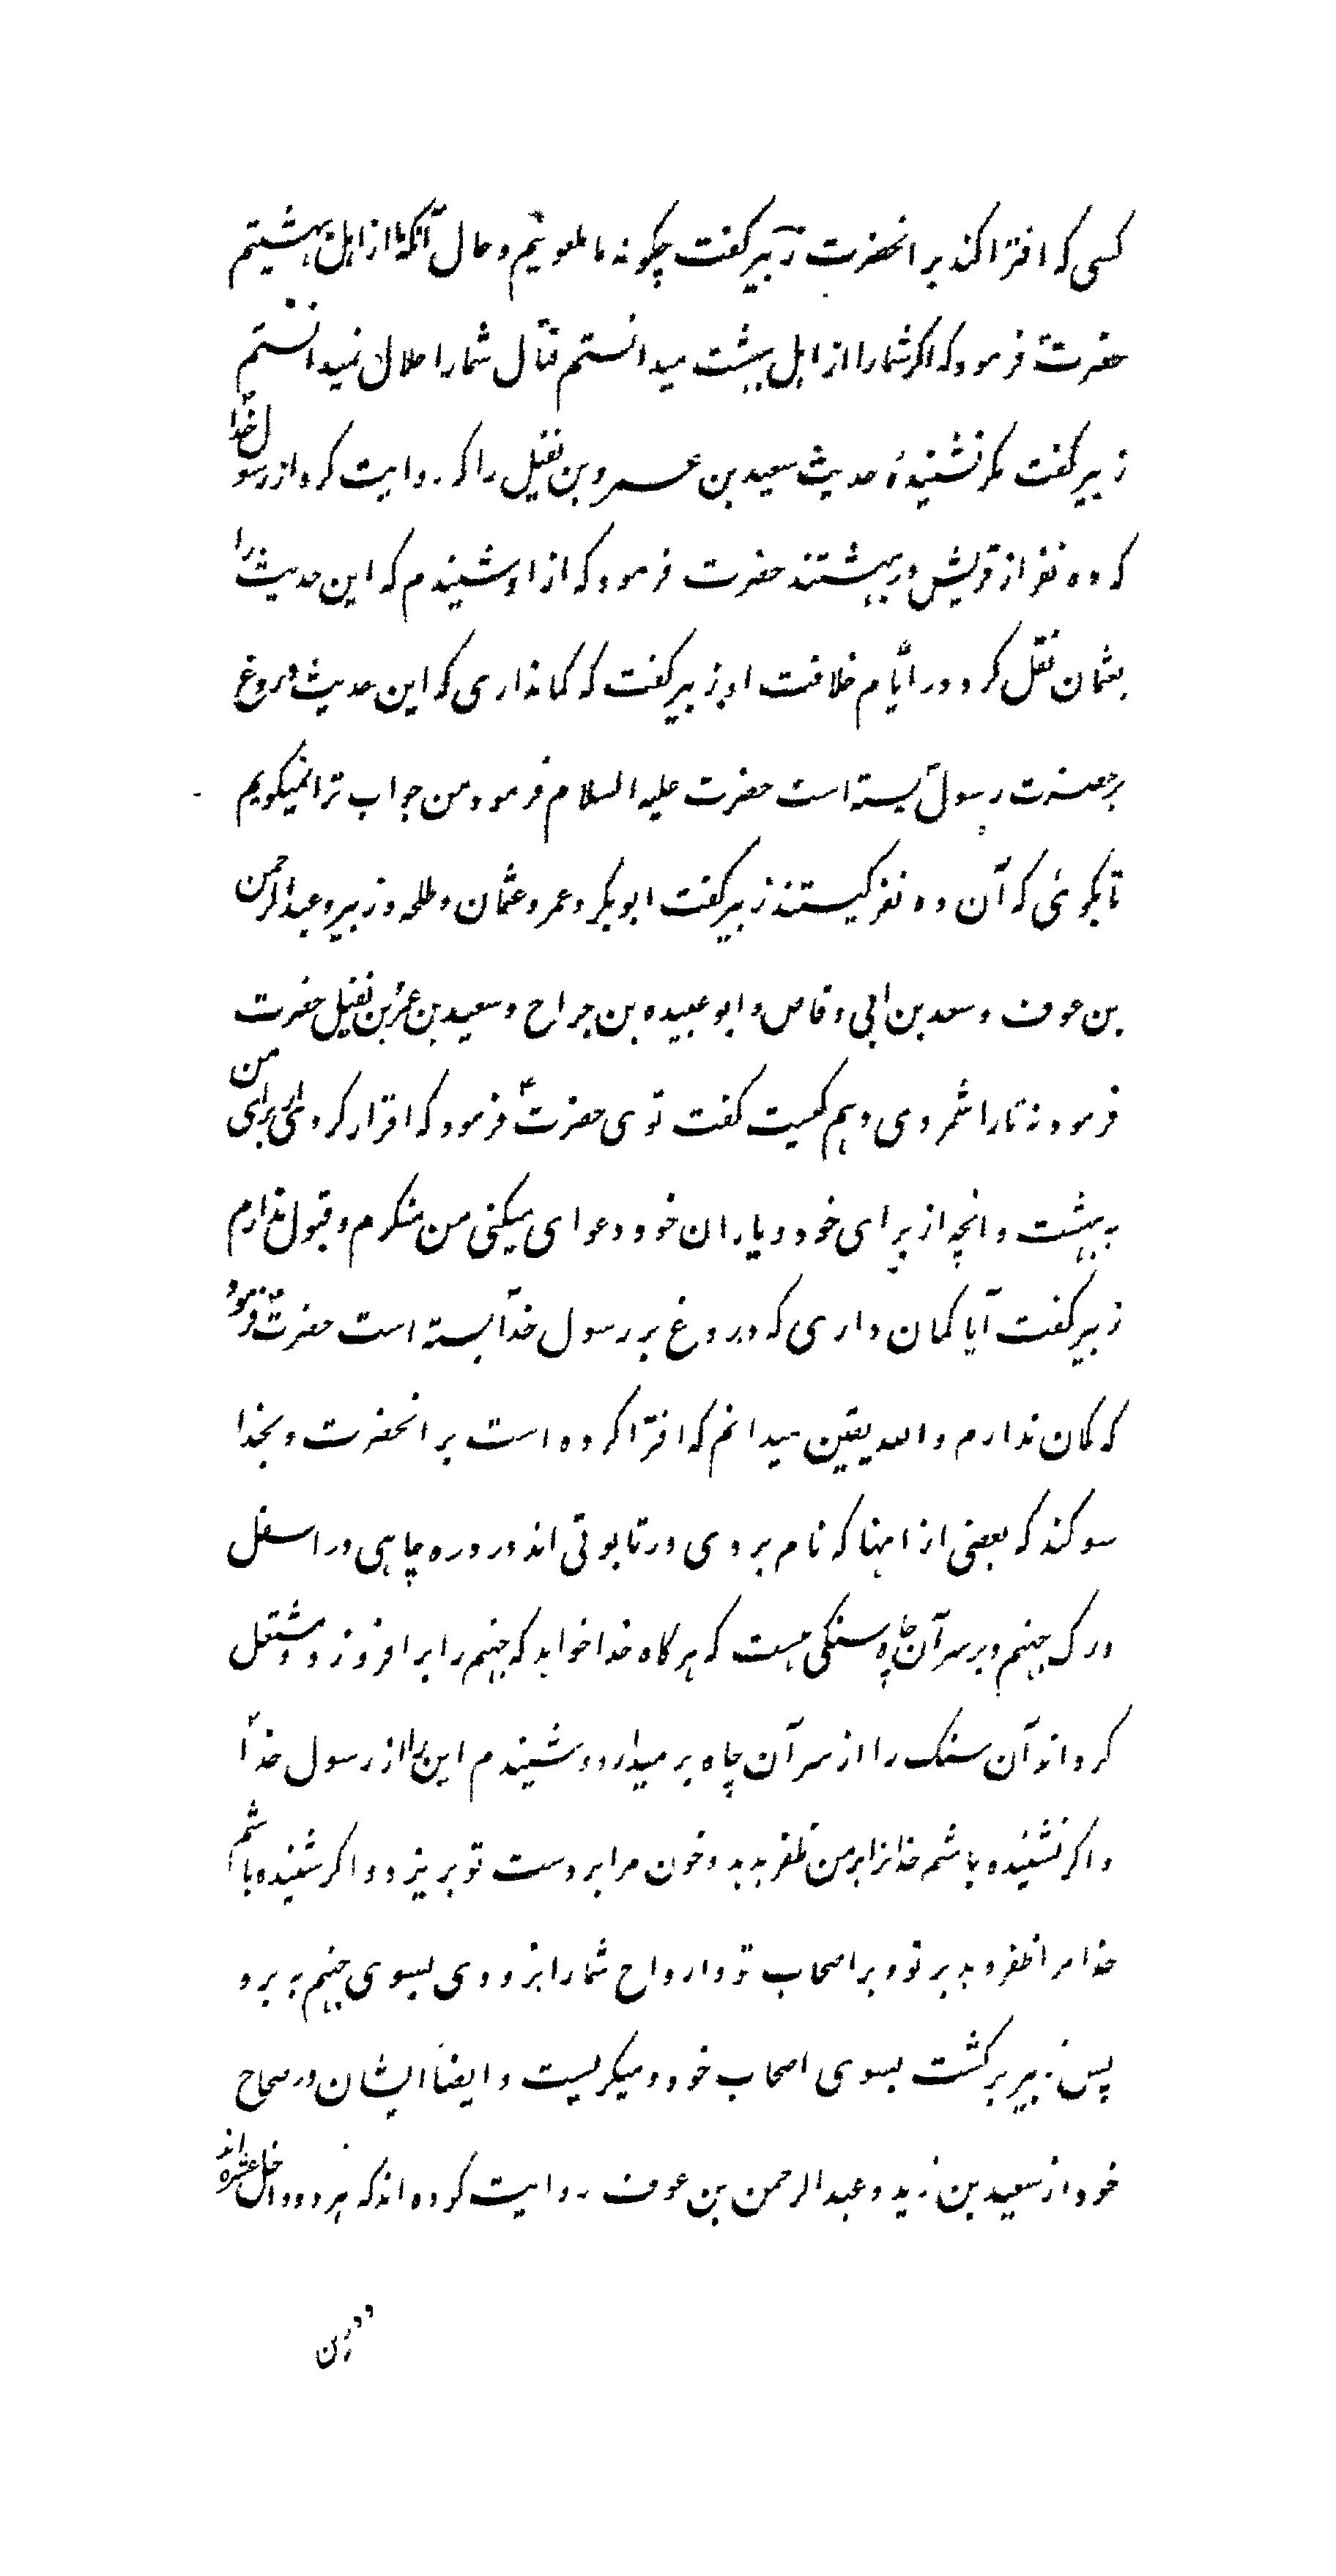 کسی که افترا کند بر انحضرت زبیر کفت چکونه ما ملعونیم و حال آنکه ما از اهل بهشتیم
حضرت فرمود که اکر شما را از اهل بهشت میدانستم قتال شما را حلال نمیدانستم
زبیر کفت مکر نشنیدهٔ حدیث سعید بن عمرو بن نفیل را که روایت کرد از رسول خدا
که ده نفر از قریش در بهشتند حضرت فرمود که از او شنیدم که این حدیث را
بعثمان نقل کرد در ایّام خلافت او زبیر کفت که کمانداری که این حدیث دروغ
بر حضرت رسول بسته است حضرت علیه السلام فرمود من جواب ترا نمیکویم
تا بکوئی که آن ده نفر کیستند زبیر کفت ابو بکر و عمر و عثمان و طلحه و زبیر و عبد الرحمن
بن عوف و سعد بن ابی وقاص و ابو عبیده بن جراح و سعید بن عمرو بن نفیل حضرت
فرمود نه تا را شمردی دهم کیست کفت توی حضرت ع فرمود که اقرار کردی از برای من
به بهشت و انچه از برای خود و یاران خود دعوای میکنی من منکرم و قبول ندارم
زبیر کفت آیا کمان داری که دروغ بر رسول خدا بسته است حضرت فرمود
که کمان ندارم و الله یقین میدانم که افترا کرده است بر انحضرت و بخدا
سوکند که بعضی از اینها که نام بردی در تابوتی اند در دره چاهی در اسفل
درک جهنم و بر سر آن چاه سنکی هست که هر کاه خدا خواهد که جهنم را بر افروزد و مشتعل
کرداند آن سنک را از سر آن چاه بر میدارد و شنیدم این را از رسول خدا
و اکر نشنیده باشم خدا ترا بر من ظفر بدهد و خون مرا بر دست تو بریزد و اکر شنیده باشم
خدا مرا ظفر دهد بر تو و بر اصحاب تو و ارواح شما را بزودی بسوی جهنم به برد
پس زبیر برکشت بسوی اصحاب خود و میکریست و ایضاً ایشان در صحاح
خود از سعید بن زید و عبد الرحمن بن عوف روایت کرده اند که هر دو داخل عشره اند